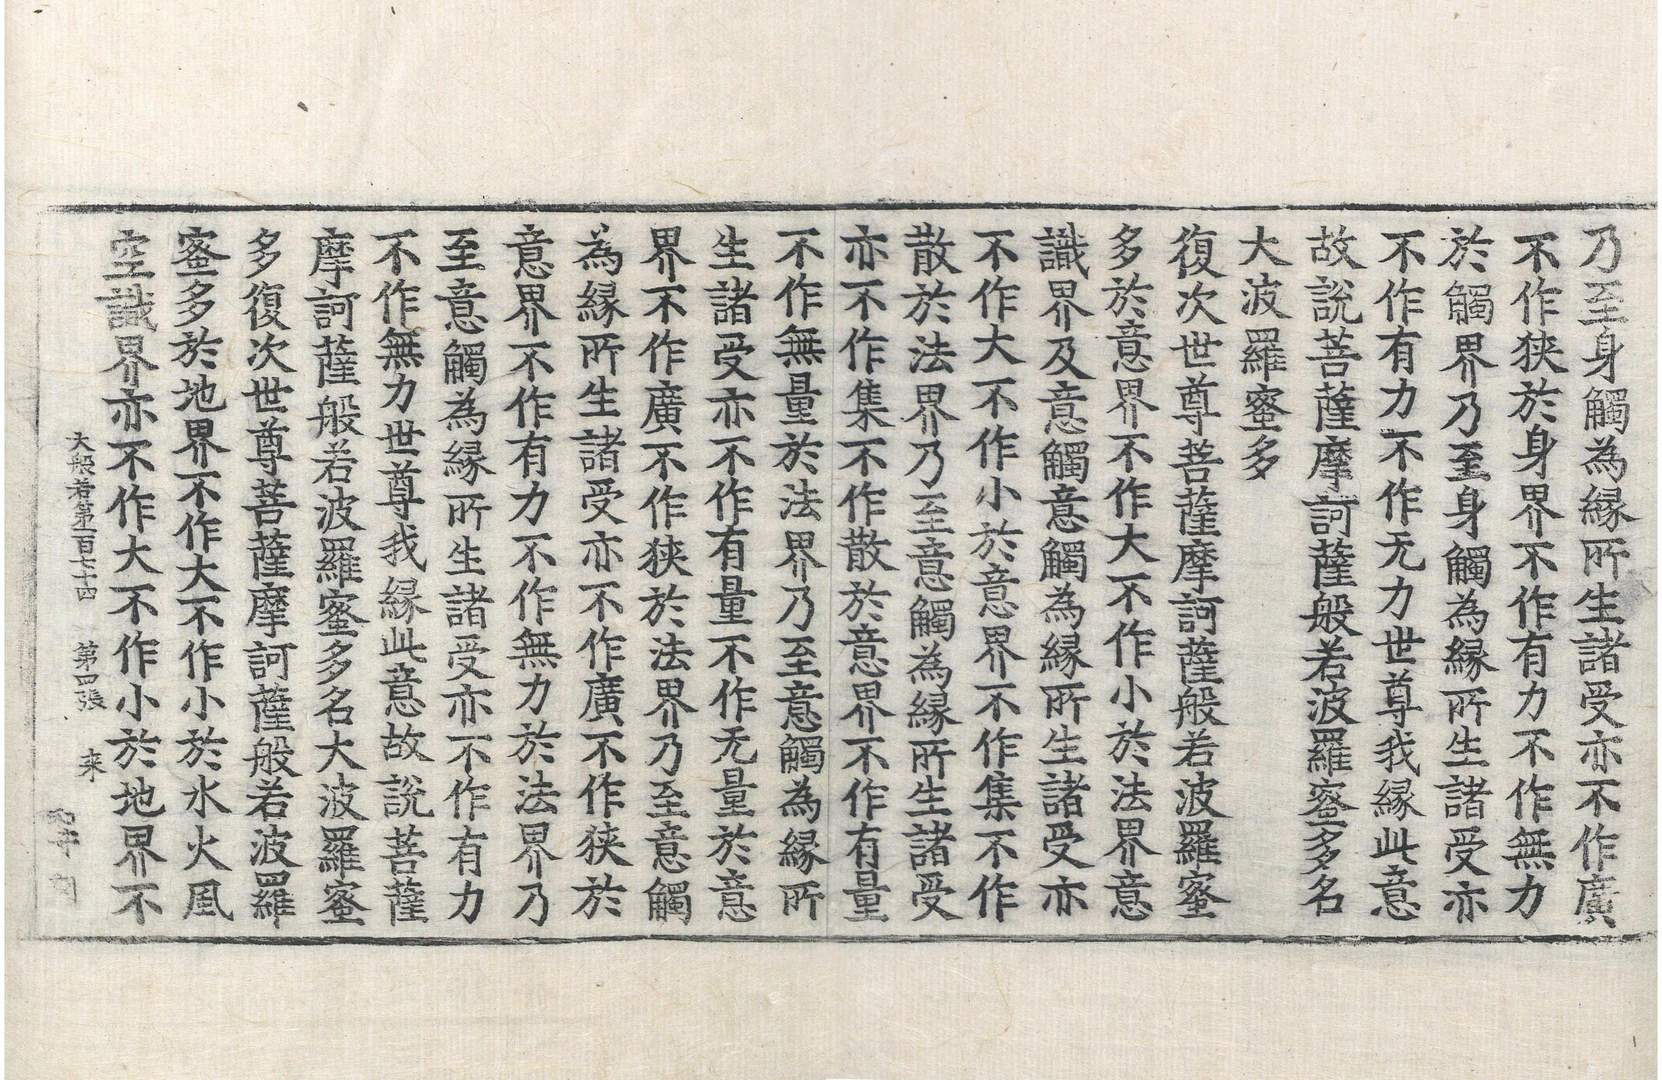 乃至身觸為緣所生諸受亦不作廣
不作狹於身界不作有力不作無力
於觸界乃至身觸為緣所生諸受亦
不作有力不作无力世尊我緣此意
故說菩薩摩訶薩般若波羅蜜多名
大波羅蜜多
復次世尊菩薩摩訶薩般若波羅蜜
多於意界不作大不作小於法界意
識界及意觸意觸為緣所生諸受亦
不作大不作小於意界不作集不作
散於法界乃至意觸為緣所生諸受
亦不作集不作散於意界不作有量
不作無量於法界乃至意觸為緣所
生諸受亦不作有量不作无量於意
界不作廣不作狹於法界乃至意觸
為緣所生諸受亦不作廣不作狹於
意界不作有力不作無力於法界乃
至意觸為緣所生諸受亦不作有力
不作無力世尊我緣此意故說菩薩
摩訶薩般若波羅蜜多名大波羅蜜
多復次世尊菩薩摩訶薩般若波羅
蜜多於地界不作大不作小於水火風
空識界亦不作大不作小於地界不
大般若第一百七十四 第四張 来